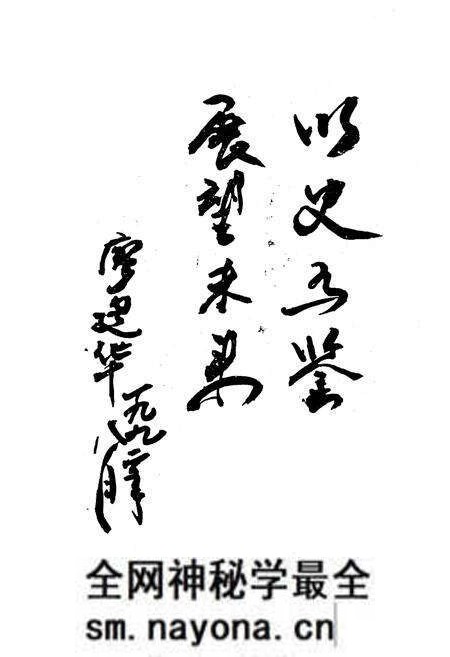 以史为鉴
展望未来
廖建华
一九九二年
八月
全网神秘学最全
sm.nayona.cn